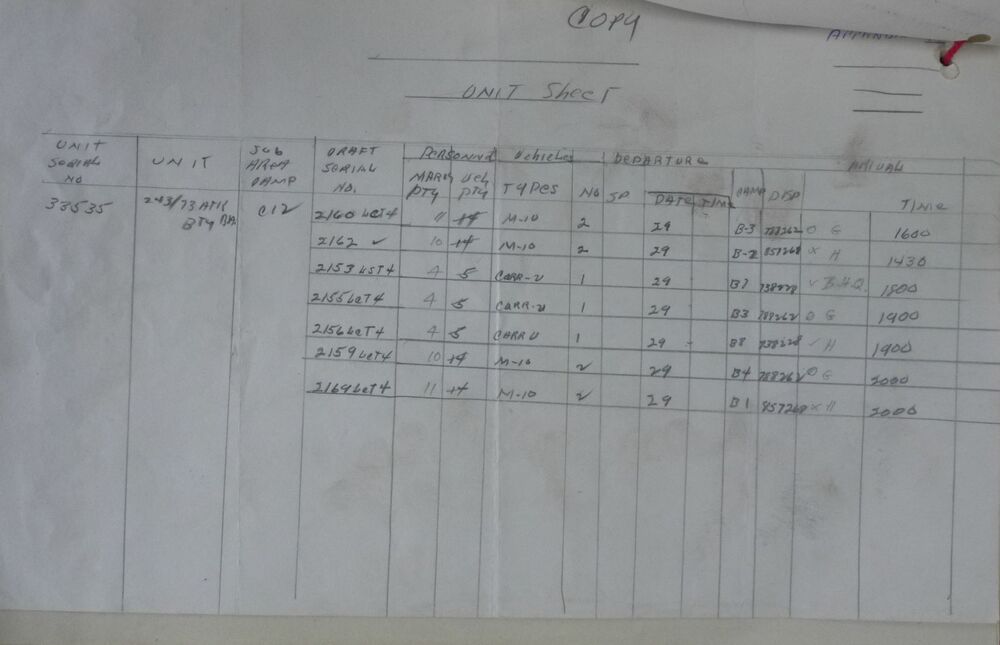 COPY
UNIT SHEET
UNIT SERIAL NO UNIT SUB AREA CAMP DRAFT SERIAL NO. PERSONNEL MARCH PTY VEH PTY VEHICLES TYPES NO DEPARTURE SP DATE TIME CAMP DISP ARRIVAL TIME
33535 243/73 ATK BTY RA C12 2160 LCT4 11 M-10 2 29 B-3 788262 O G 1600
2162 ✓ 10 M-10 2 29 B-2 857268 X H 1430
2153 LST4 4 5 CARR-U 1 29 B7 738228 ✓ B.H.Q. 1800
2155 LCT4 4 5 CARR-U 1 29 B3 788262 O G 1900
2156 LCT4 4 5 CARR U 1 29 B8 738228 ✓ H 1900
2159 LCT4 10 M-10 2 29 B4 788262 O G 2000
2169 LCT4 11 M-10 2 29 B1 857268 X H 2000